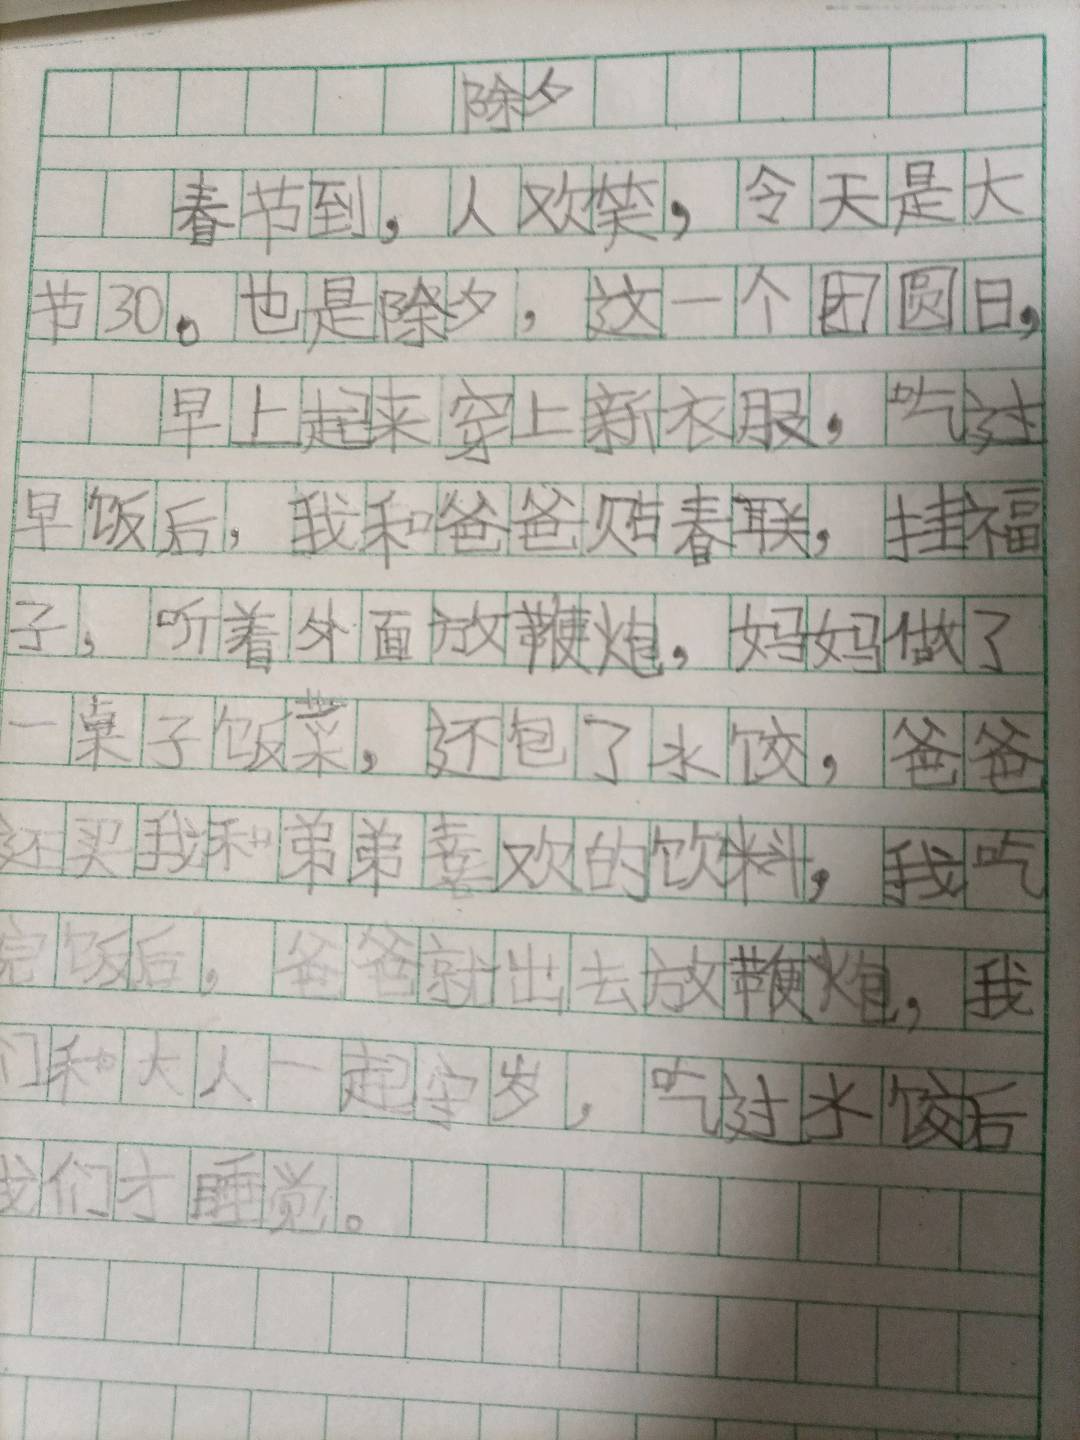 除夕
春节到，人欢笑，令天是大
节30。也是除夕，这一个团圆日，
早上起来穿上新衣服，吃过
早饭后，我和爸爸贴春联，挂福
子，听着外面放鞭炮，妈妈做了
一桌子饭菜，还包了水饺，爸爸
还买我和弟弟喜欢的饮料，我吃
完饭后，爸爸就出去放鞭炮，我
们和大人一起守岁，吃过水饺后
我们才睡觉。